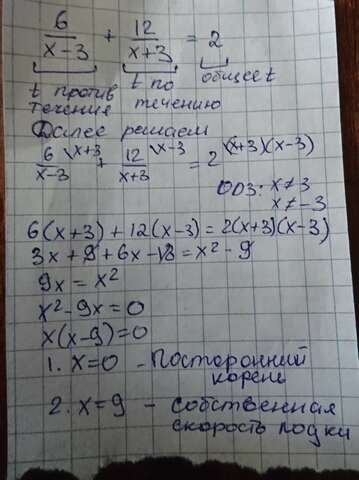 6/(x-3) + 12/(x+3) = 2
t против течение
t по течению
общее t
Далее решаем
6/(x-3) \x+3 + 12/(x+3) \x-3 = 2 \(x+3)(x-3)
ОДЗ: x≠3
x≠-3
6(x+3)+12(x-3)=2(x+3)(x-3)
3x+9+6x-18=x²-9
9x=x²
x²-9x=0
x(x-9)=0
1. x=0 - Посторонний
корень
2. x=9 - собственная
скорость лодки